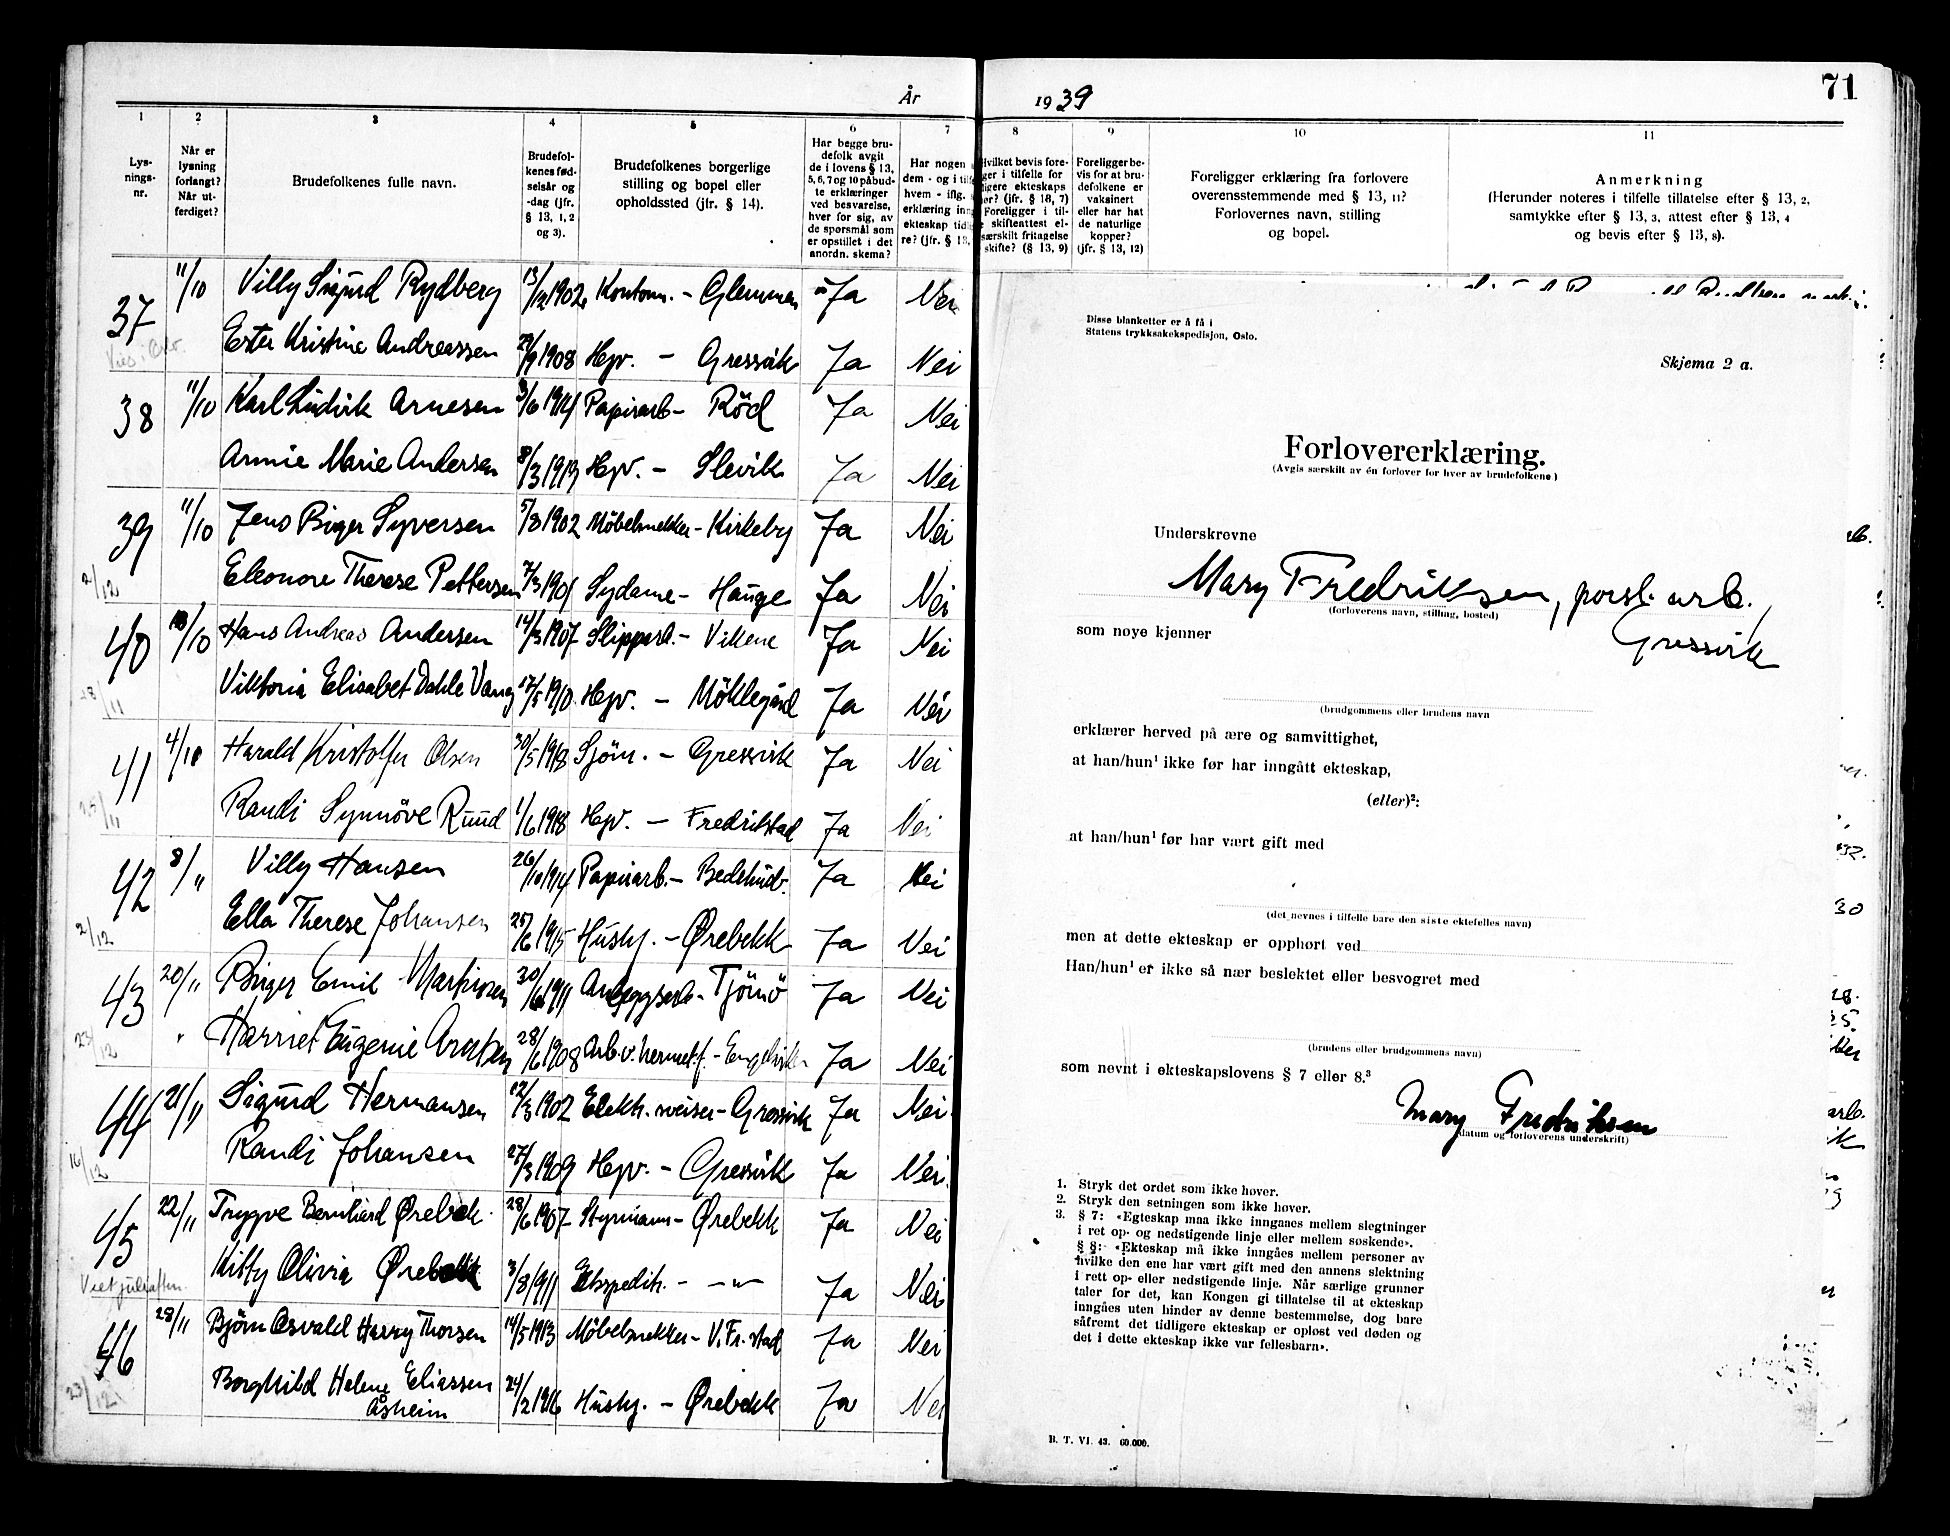 År 1939
71
1 2 3 4 5 6 7 8 9 10 11
Lys-
nings-
nr.
Når er
lysning
forlangt?
Når ut-
ferdiget?
Brudefolkenes fulle navn.
Brudefol-
kenes fød-
selsår og
-dag (jfr.
§ 13, 1, 2
og 3).
Brudefolkenes borgerlige
stilling og bopel eller
opholdssted (jfr. § 14).
Har begge bru-
defolk avgit
de i lovens § 13,
5, 6, 7 og 10 påbud-
te erklæringer
ved besvarelse,
hver for sig, av
de spørsmål som
er opstillet i det
anordn. skema?
Har nogen
dem - og i tilf
hvem - iflg.
erklæring inn
ekteskap tid
re? (jfr. § 13,
Hvilket bevis fore-
ger i tilfelle for
ligere ekteskaps
hør? (jfr. § 18, 7)
Foreligger i til-
e skifteattest el-
særskilt fritagelse
skifte? (§ 13, 9)
Foreligger be-
vis for at bru-
defolkene er
vaksinert
eller har hat
de naturlige
kopper?
(jfr. § 13, 12)
Foreligger erklæring fra forlovere
overensstemmende med § 13, 11?
Forlovernes navn, stilling
og bopel.
Anmerkning
(Herunder noteres i tilfelle tillatelse efter § 13, 2,
samtykke efter § 13, 3, attest efter § 13, 4
og bevis efter § 13, 8).
37 11/10 Villy Sigurd Rydberg 13/12 1902 Kontorm. - Glemmen Ja Nei
Ester Kristine Andreassen 22/9 1908 Hgv. - Gressvik Ja Nei
38 11/10 Karl Ludvik Arnesen 3/6 1914 Papirarb - Röd Ja Nei
Annie Marie Andersen 8/3 1913 Hgv. - Slevik Ja Nei
39 11/10 Jens Birger Syversen 5/8 1902 Möbelsnekker - Kirkeby Ja Nei
2/12 Eleonore Therese Pettersen 7/3 1901 Sydame - Hauge Ja Nei
40 18/10 Hans Andreas Andersen 14/3 1907 Slipparb. - Vikene Ja Nei
28/11 Viktoria Elisabet Dahle Vang 17/5 1910 Hgv. - Möklegård Ja Nei
41 4/10 Harald Kristoffer Olsen 30/5 1918 Sjöm. - Gressvik Ja Nei
25/11 Randi Synnöve Ruud 1/6 1918 Hgv. - Fredrikstad Ja Nei
42 8/11 Villy Hansen 26/10 1914 Papirarb. - Ja Nei
2/12 Ella Therese Johansen 25/6 1915 Hush. - Ørebekk Ja Nei
43 20/11 Birger Emil Martinsen 30/6 1911 Anleggsarb - Tjömö Ja Nei
23/12 Harriet Eugenie 28/6 1908 Arb. v. hermet.f. - Engelsviken Ja Nei
44 21/11 Sigurd Hermansen 12/3 1902 Elektr. sveiser - Gressvik Ja Nei
16/12 Randi Johansen 27/3 1909 Hgv. - Gressvik Ja Nei
45 22/11 Trygve Bernhard Ørebek. 28/6 1907 Styrmann - Ørebekk Ja Nei
Viet julaften Kitty Olivia Ørebekk 3/8 1911 Ekspeditr. - Ja Nei
46 28/11 Björn Osvald Harry Thorsen 14/5 1913 Möbelsnekker - V. Fr.stad Ja Nei
23/12 Borghild Helene Eliassen 24/2 1916 Hush. - Ørebekk Ja Nei
Åsheim
Disse blanketter er å få i
Statens trykksakekspedisjon, Oslo.
Skjema 2 a.
Forlovererklæring.
(Avgis særskilt av én forlover for hver av brudefolkene)
Underskrevne
Mary Fredriksen, porsl. arb.,
(forloverens navn, stilling, bosted)
Gressvik
som nøye kjenner
(brudgommens eller brudens navn
erklærer herved på ære og samvittighet,
at han/hun¹ ikke før har inngått ekteskap,
(eller)²:
at han/hun¹ før har vært gift med
(det nevnes i tilfelle bare den siste ektefelles navn)
men at dette ekteskap er opphørt ved
Han/hun¹ er ikke så nær beslektet eller besvogret med
(brudens eller brudgommens navn)
som nevnt i ekteskapslovens § 7 eller 8.³
Mary Fredriksen
(datum og forloverens underskrift)
1. Stryk det ordet som ikke høver.
2. Stryk den setningen som ikke høver.
3. § 7: «Egteskap maa ikke innganes mellem slegtninger
i ret op- og nedstigende linje eller mellem søskende».
§ 8: «Ekteskap må ikke inngåes mellem personer av
hvilke den ene har vært gift med den annens slektning
i rett op- eller nedstigende linje. Når særlige grunner
taler for det, kan Kongen gi tillatelse til at ekteskap
inngåes uten hinder av denne bestemmelse, dog bare
såfremt det tidligere ekteskap er opløst ved døden og
det i dette ekteskap ikke var fellesbarn».
B. T. VI. 43. 60.000.